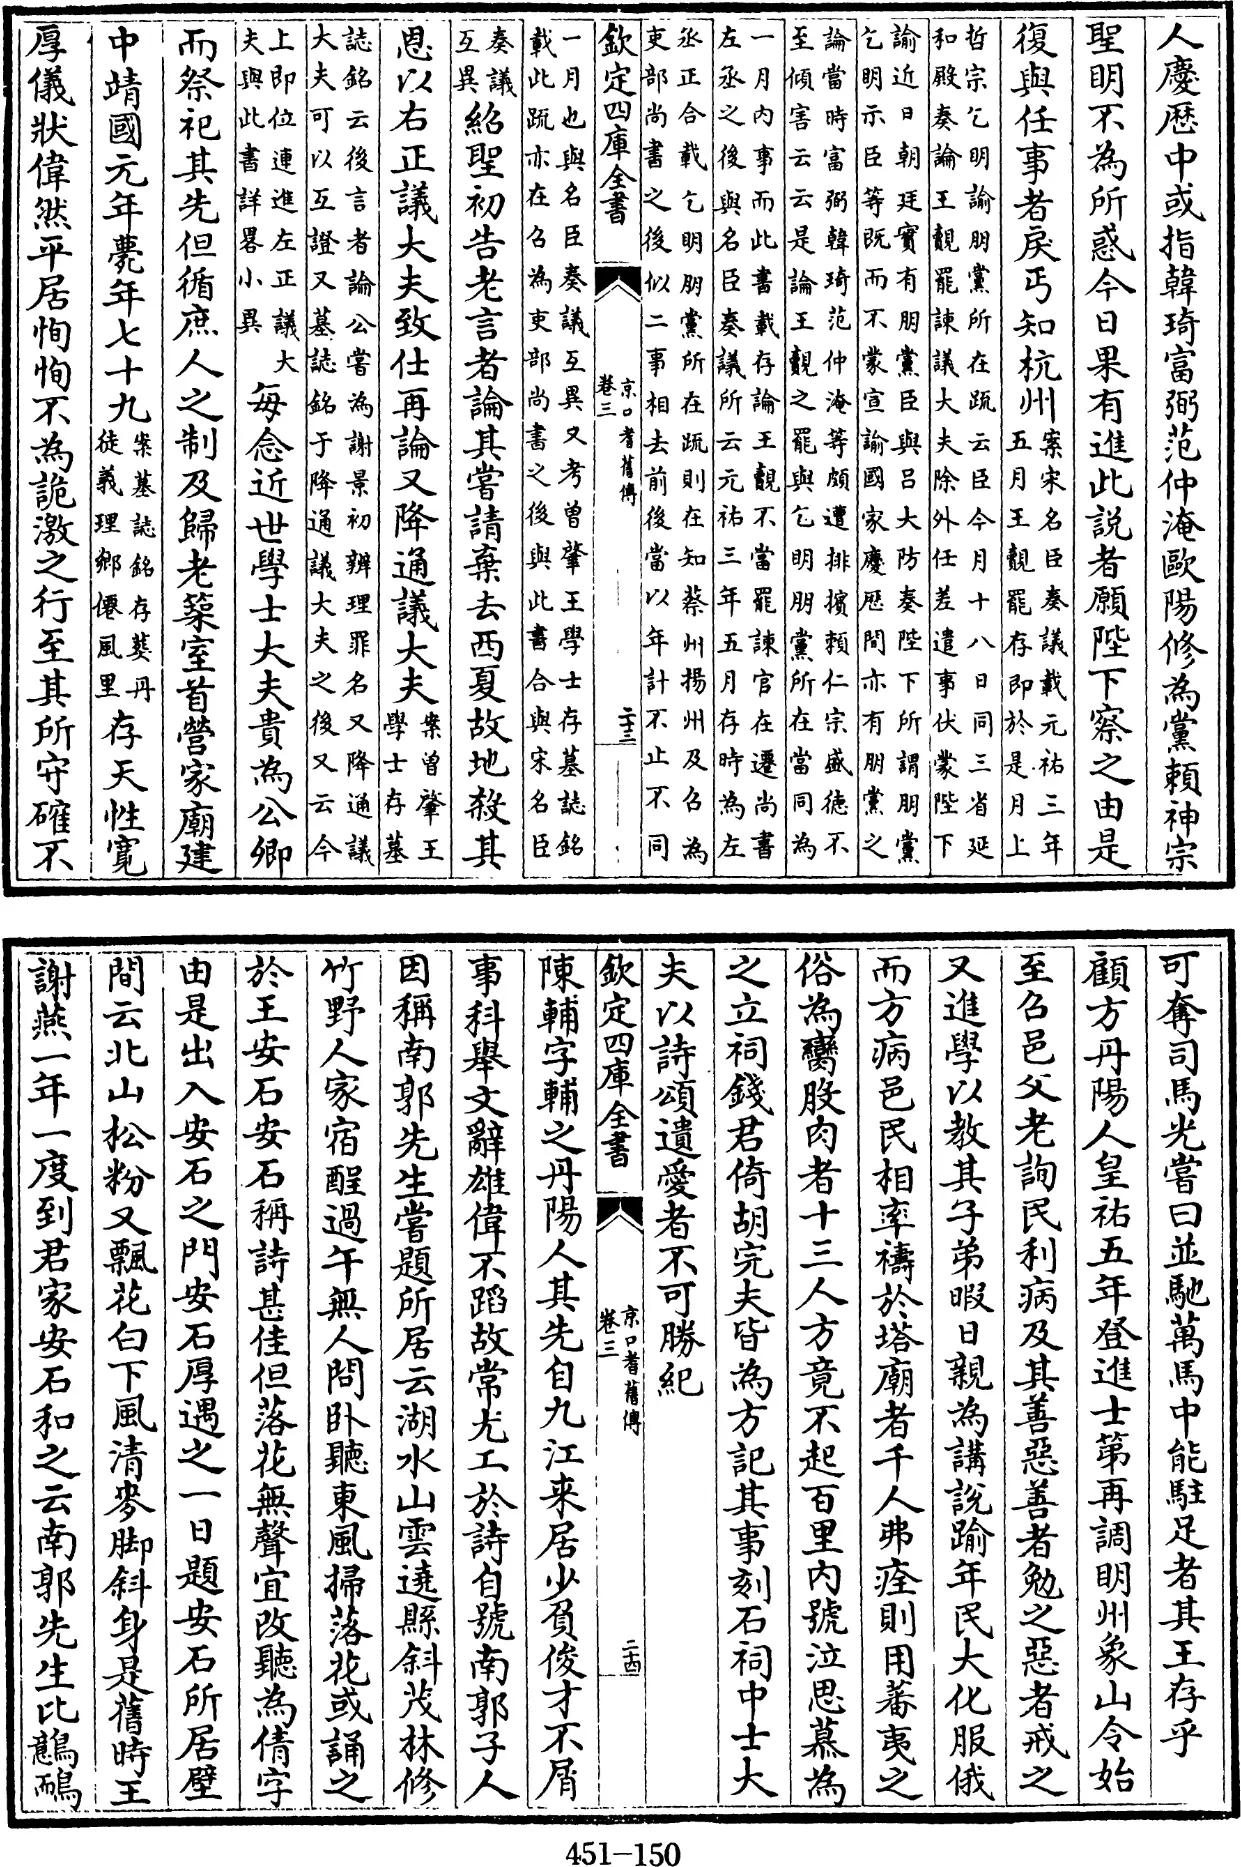 人慶歴中或指韓琦富弼范仲淹歐陽修為黨賴神宗
聖明不為所惑今日果有進此説者願陛下察之由是
復與任事者戾丐知杭州案宋名臣奏議載元祐三年
五月王覿罷存即於是月上
哲宗乞明諭朋黨所在疏云臣今月十八日同三省延
和殿奏論王覿罷諫議大夫除外任差遣事伏蒙陛下
諭近日朝廷實有朋黨臣與吕大防奏陛下所謂朋黨
乞明示臣等既而不蒙宣諭國家慶厯間亦有朋黨之
論當時富弼韓琦范仲淹等頗遭排擯賴仁宗盛徳不
至傾害云云是論王覿之罷與乞明朋黨所在當同為
一月内事而此書載存論王覿不當罷諫官在遷尚書
左丞之後與名臣奏議所云元祐三年五月存時為左
丞正合載乞明朋黨所在疏則在知蔡州揚州及召為
吏部尚書之後似二事相去前後當以年計不止不同
欽定四庫全書
京口耆舊傳
卷三
二十三
一月也與名臣奏議互異又考曾肇王學士存墓誌銘
載此疏亦在召為吏部尚書之後與此書合與宋名臣
奏議
互異紹聖初告老言者論其嘗請棄去西夏故地殺其
恩以右正議大夫致仕再論又降通議大夫案曾肇王
學士存墓
誌銘云後言者論公嘗為謝景初辨理罪名又降通議
大夫可以互證又墓誌銘于降通議大夫之後又云今
上即位連進左正議大
夫與此書詳畧小異每念近世學士大夫貴為公卿
而祭祀其先但循庶人之制及歸老築室首營家廟建
中靖國元年薨年七十九案墓誌銘存葬丹
徒義理鄉僊風里存天性寛
厚儀狀偉然平居恂恂不為詭激之行至其所守確不
可奪司馬光嘗曰並馳萬馬中能駐足者其王存乎
顧方丹陽人皇祐五年登進士第再調明州象山令始
至召邑父老詢民利病及其善惡善者勉之惡者戒之
又進學以教其子弟暇日親為講説踰年民大化服俄
而方病邑民相率禱於塔廟者千人弗痊則用蕃夷之
俗為臠股肉者十三人方竟不起百里内號泣思慕為
之立祠錢君倚胡完夫皆為方記其事刻石祠中士大
夫以詩頌遺愛者不可勝紀
欽定四庫全書
京口耆舊傳
卷三
二十四
陳輔字輔之丹陽人其先自九江来居少負俊才不屑
事科舉文辭雄偉不蹈故常尤工於詩自號南郭子人
因稱南郭先生嘗題所居云湖水山雲遶縣斜茂林修
竹野人家宿酲過午無人問卧聽東風掃落花或誦之
於王安石安石稱詩甚佳但落花無聲宜改聽為倩字
由是出入安石之門安石厚遇之一日題安石所居壁
間云北山松粉又飄花白下風清麥脚斜身是舊時王
謝燕一年一度到君家安石和之云南郭先生比鷾鴯
451-150